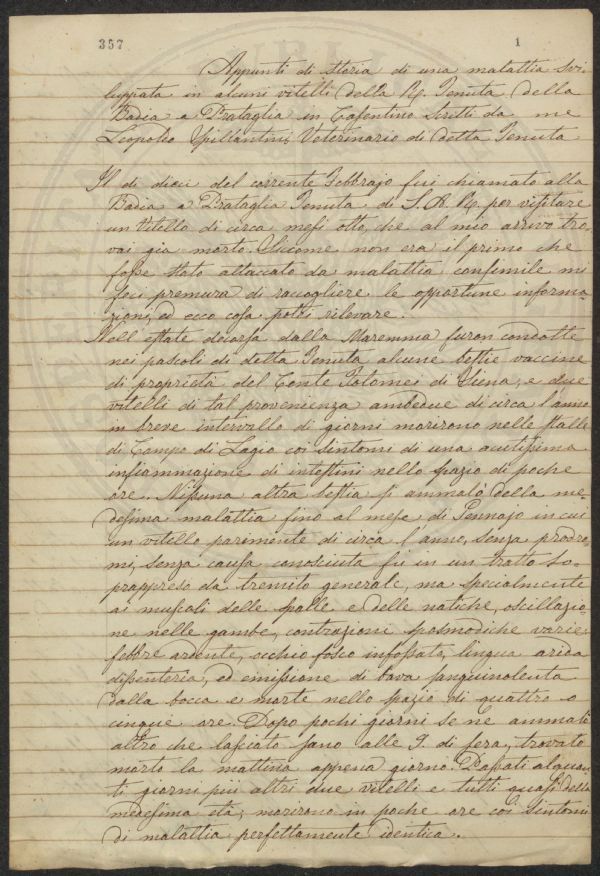 357
1
Appunti di storia di una malattia svi-
luppata in alcuni vitelli della R. Tenuta della
Badia a Prataglia in Casentino scritti da me
Leopoldo Spillantini, Veterinario di detta Tenuta
Il dì dieci del corrente Febbrajo fui chiamato alla
Badia a Prataglia Tenuta di S. A. R. per visitare
un Vitello di circa mesi otto, che al mio arrivo tro-
vai già morto. Siccome non era il primo che
fosse stato attaccato da malattia consimile mi
feci premura di raccogliere le opportune informa-
zioni, ed ecco cosa potei rilevare.
Nell'estate decorsa dalla Maremma furon condotte
nei pascoli di detta Tenuta alcune bestie vaccine
di proprietà del Conte Tolomei di Siena, e due
vitelli di tal provenienza ambedue di circa l'anno
in breve intervallo di giorni morirono nelle stalle
di Campo di Lagio coi sintomi di una acutissima
infiammazione di intestini nello spazio di poche
ore. Nissuna altra bestia si ammalò della me-
desima malattia fino al mese di Gennajo in cui
un vitello parimente di circa l'anno, senza prodro-
mi, senza causa conosciuta fu in un tratto so-
prappreso da tremito generale, ma specialmente
ai muscoli delle spalle e delle natiche, oscillazio-
ne nelle gambe, contrazioni spasmodiche varie,
febbre ardente, occhio fosco infossato, lingua arida
dissenteria, ed emissione di bava sanguinolenta
dalla bocca e morte nello spazio di quattro o
cinque ore. Dopo pochi giorni se ne ammalò
altro che lasciato sano alle 9. di sera, trovato
morto la mattina appena giorno. Passati alquan-
ti giorni più altri due vitelli e tutti quasi della
medesima età, morirono in poche ore coi sintomi
di malattia perfettamente identica.